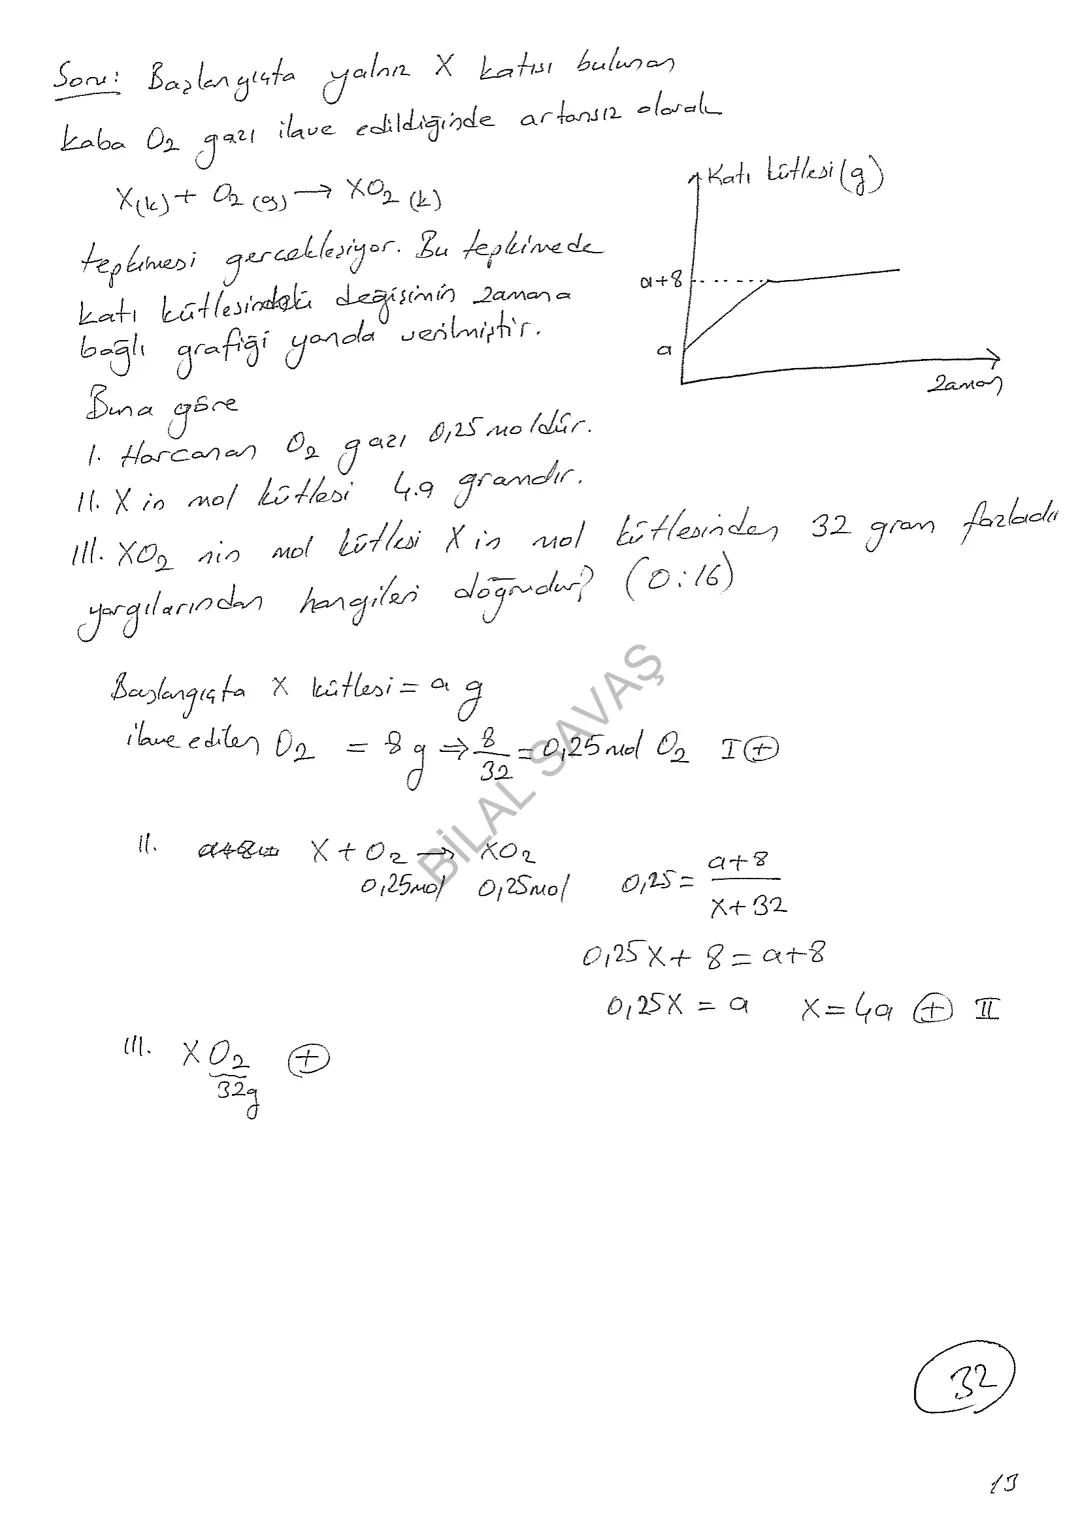 Soru: Başlangıçta yalnız X katısı bulunan
kaba O2 gazı ilave edildiğinde artansız olarak
X(k) + O2 (g) → XO2 (k)
tepkimesi gerçekleşiyor. Bu tepkimede
katı kütlesindeki değişimin zamana
bağlı grafiği yanda verilmiştir.
Katı kütlesi (g)
a+8
a
Zaman
Buna göre
I. Harcanan O2 gazı 0,25 moldür.
II. X in mol kütlesi 4.a gramdır.
III. XO2 nin mol kütlesi X in mol kütlesinden 32 gram fazladır
yargılarından hangileri doğrudur? (O:16)
Başlangıçta X kütlesi = a g
ilave edilen O2 = 8 g ⇒ 8/32 = 0,25 mol O2 I (+)
II. X + O2 → XO2
0,25mol 0,25mol
0,25 = a+8 / x+32
0,25X + 8 = a+8
0,25X = a X = 4a (+) II
III. XO2 (+)
32g
BİLAL SAVAŞ
32
13